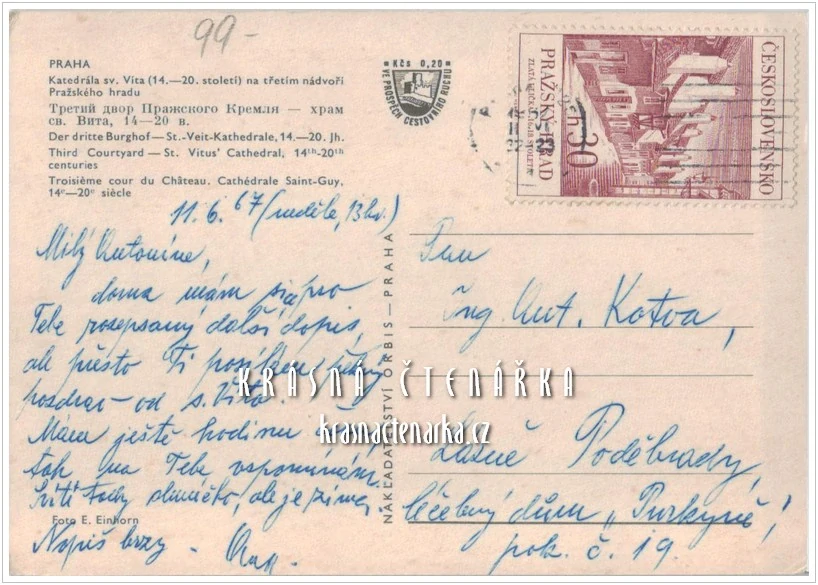 99-
PRAHA
Katedrála sv. Víta (14.—20. století) na třetím nádvoří
Pražského hradu
Третий двор Пражского Кремля — храм
св. Вита, 14—20 в.
Der dritte Burghof — St.-Veit-Kathedrale, 14.—20. Jh.
Third Courtyard — St. Vitus' Cathedral, 14th-20th
centuries
Troisième cour du Château. Cathédrale Saint-Guy,
14e—20e siècle
Kčs 0,20
VE PROSPĚCH CESTOVNÍHO RUCHU
ČESKOSLOVENSKO
PRAŽSKÝ HRAD
30
11.6.67 (neděle, 13 hod.)
Milý Antoníne,
doma mám pro
Tebe rozepsaný další dopis,
ale přesto Ti posílám
pozdrav od s. Víta.
Mám ještě hodinu
tak na Tebe vspomínám.
Svítí tady sluníčko, ale je zima.
Napiš brzy.
Foto E. Einhorn
NAKLADATELSTVÍ ORBIS—PRAHA
Pan
ing. Ant. Kotva,
Lázně Poděbrady,
léčebný dům „Purkyně"
pok. č. 19.
KRÁSNÁ ČTENÁŘKA
krasnactenarka.cz